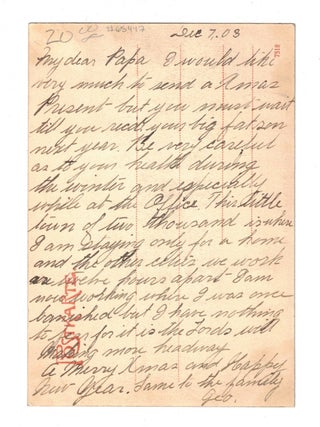 20 00 #65447
Dec 7. 03
7518
My dear Papa I would like
very much to send a Xmas
Present but you must wait
till you recd your big fat son
next year. Be very careful
as to your health during
the winter and especially
while at the Office This little
town of two thousand is where
I am Staying only for a home
and the other cities we work
are twelve hours apart I am
now working where I was once
banished but I have nothing
to for it is the Lords will
making more headway
A Merry Xmas and Happy
New Year. Same to the family
Geo.
POSTKARTE